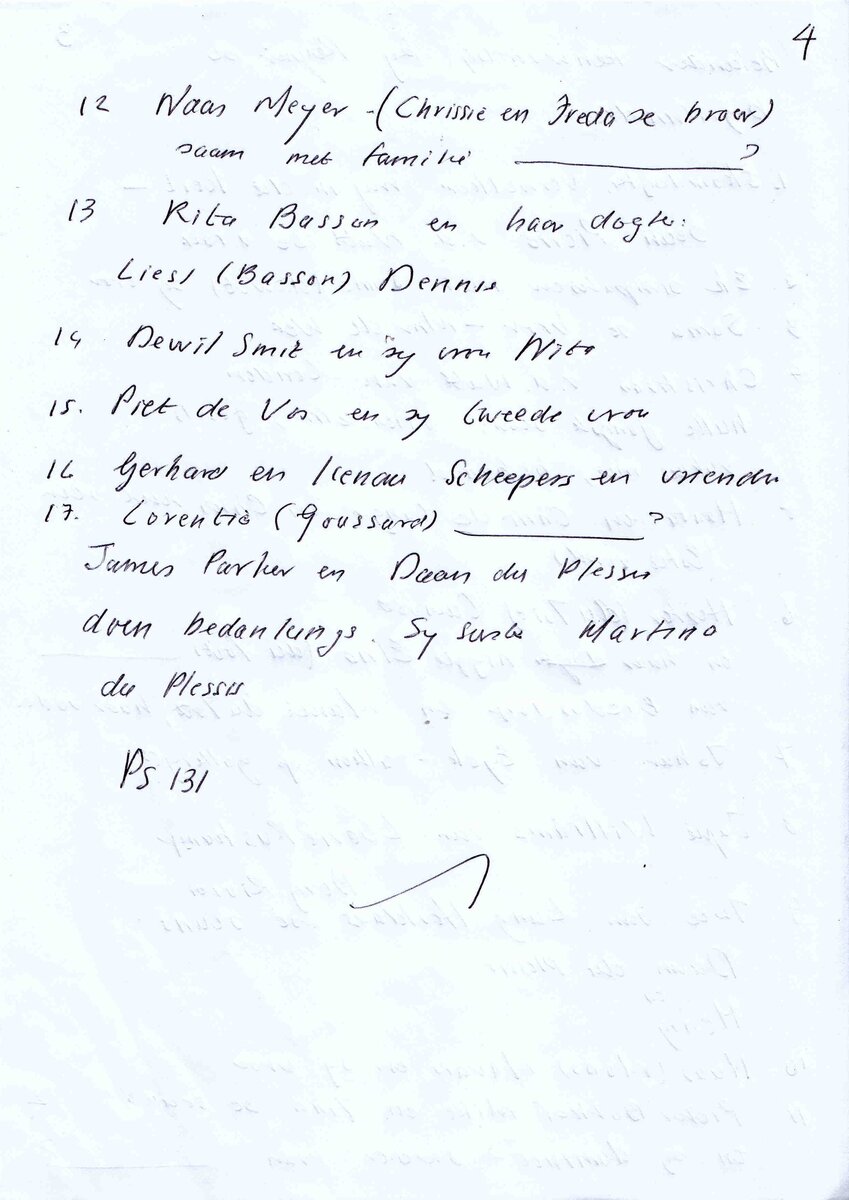 4
12 Naas Meyer - (Chrissie en Freda se broer)
saam met familie ?
13 Rita Basson en haar dogter:
Liesl (Basson) Dennis
14. Dewil Smit en sy vrou Nita
15. Piet de Vos en sy tweede vrou
16 Gerhard en Scheepers en vriende
17. Lorentia (Goussard) ?
James Parker en Daan du Plessis
doen bedankings. Sy suster Martino
du Plessis
Ps 131